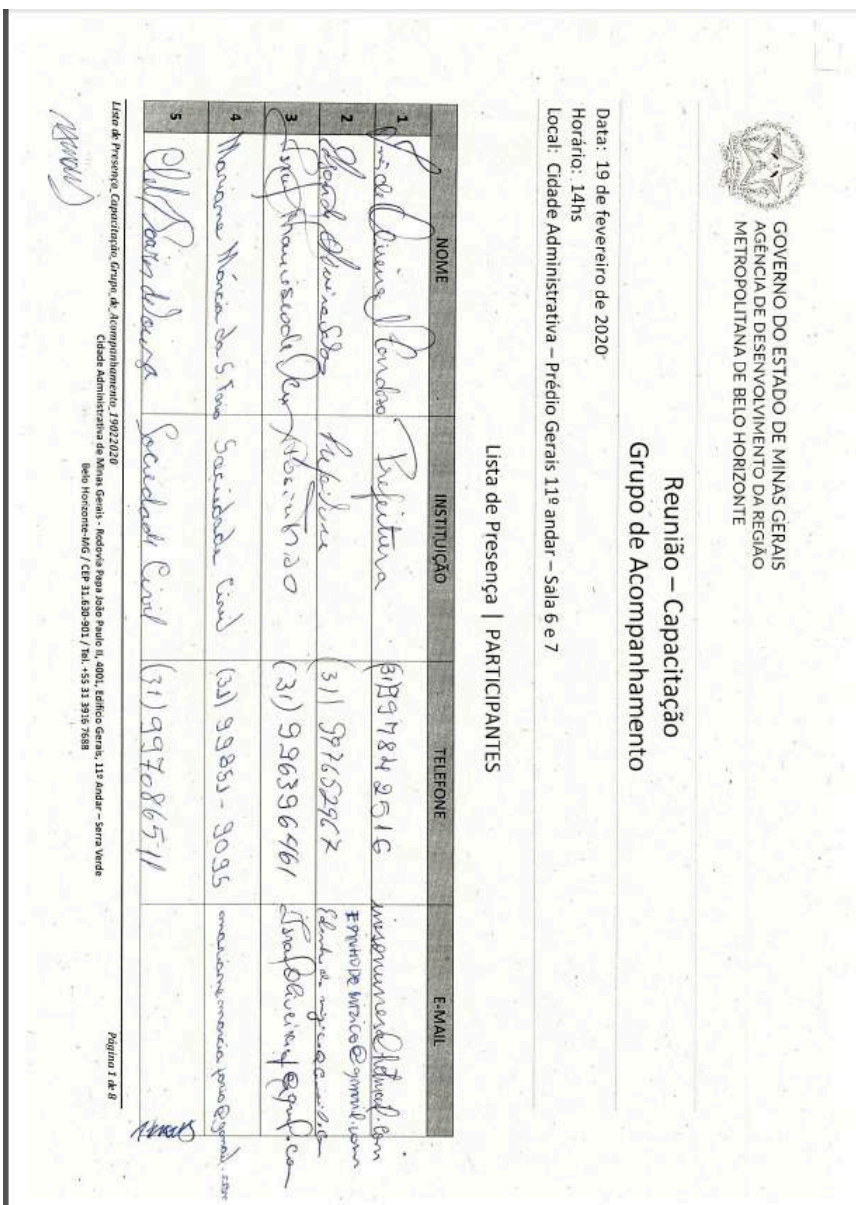 GOVERNO DO ESTADO DE MINAS GERAIS
AGÊNCIA DE DESENVOLVIMENTO DA REGIÃO
METROPOLITANA DE BELO HORIZONTE
Reunião – Capacitação
Grupo de Acompanhamento
Data: 19 de fevereiro de 2020
Horário: 14hs
Local: Cidade Administrativa – Prédio Gerais 11º andar – Sala 6 e 7
Lista de Presença | PARTICIPANTES
NOME INSTITUIÇÃO TELEFONE E-MAIL
1 Cardoso Prefeitura (31) 997842516
2 Silva Prefeitura (31) 997652967
3 (31) 996396461
4 Mariane Márcia da S. Sociedade Civil (31) 99851-9095
5 Soares de Souza Sociedade Civil (31) 997086511
Lista de Presença_Capacitação_Grupo_de_Acompanhamento_19022020
Página 1 de 8
Cidade Administrativa de Minas Gerais - Rodovia Papa João Paulo II, 4001, Edifício Gerais, 11º Andar – Serra Verde
Belo Horizonte-MG / CEP 31.630-901 / Tel. +55 31 3916 7688